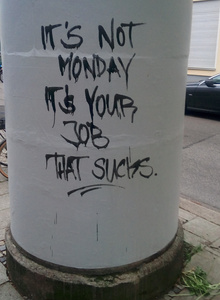 IT'S NOT
MONDAY
IT'S YOUR
JOB
THAT SUCKS.